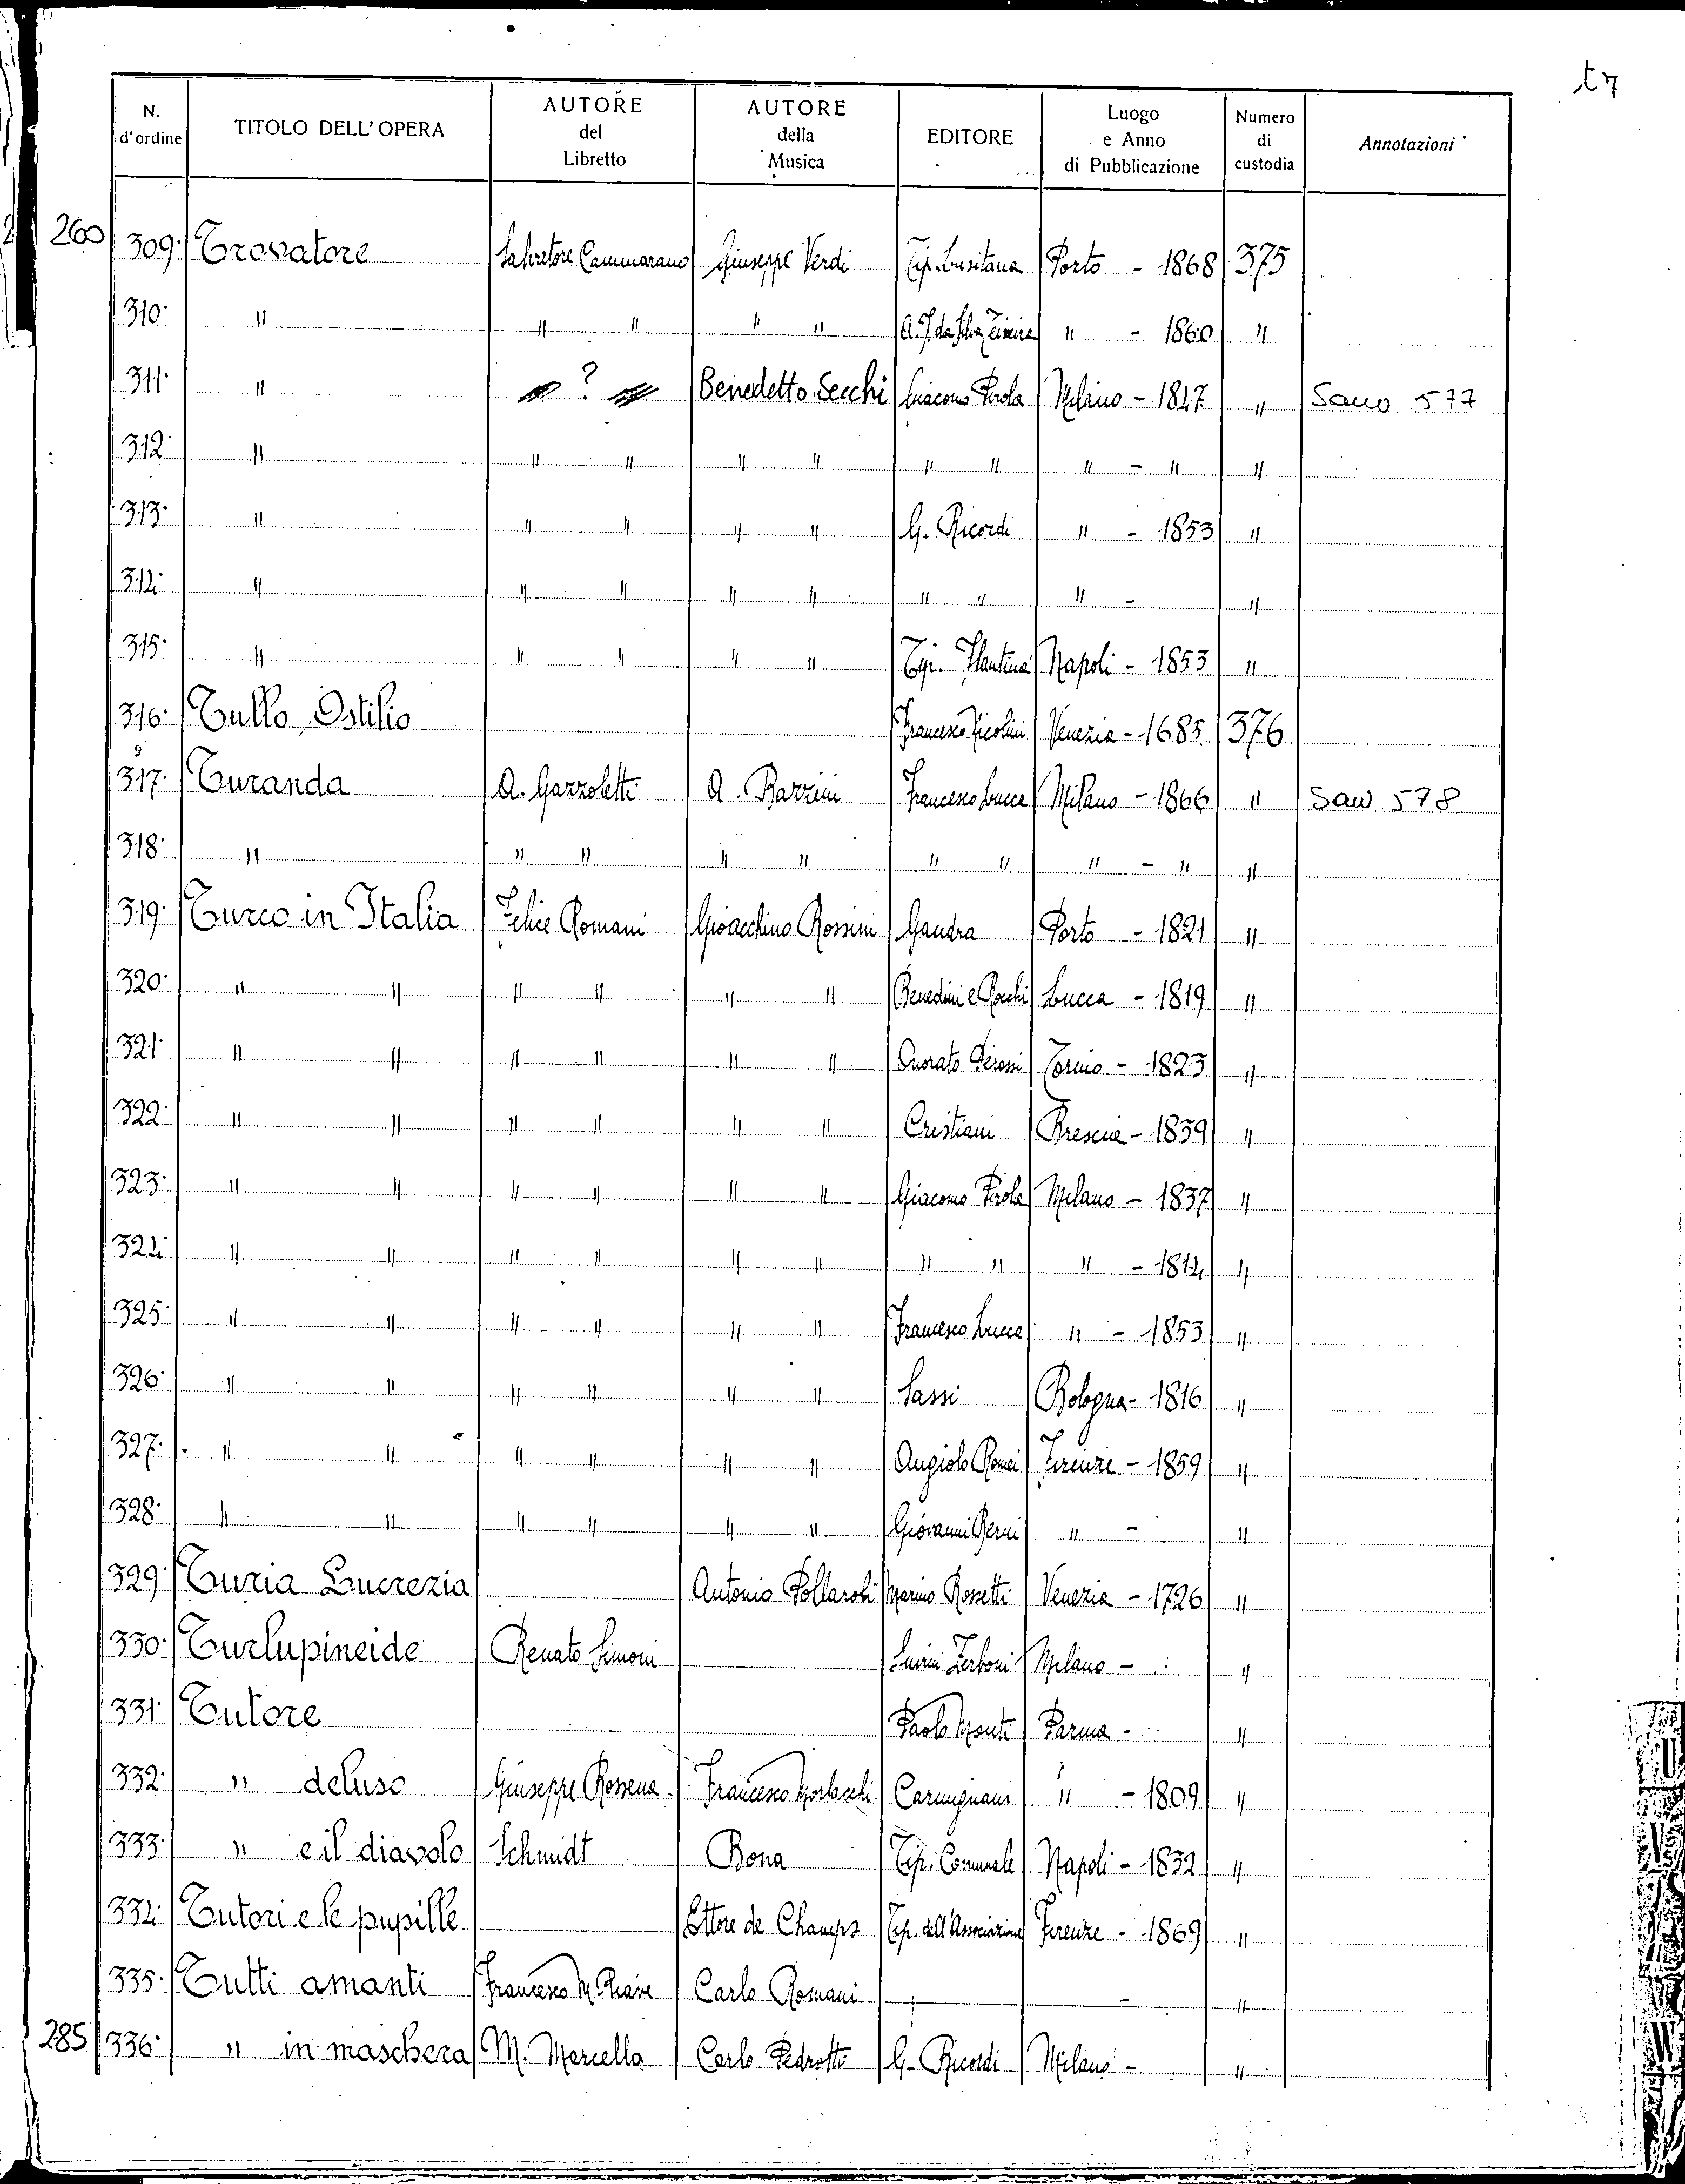 t7
N. d'ordine TITOLO DELL'OPERA AUTORE del Libretto AUTORE della Musica EDITORE Luogo e Anno di Pubblicazione Numero di custodia Annotazioni
260 309· Trovatore Salvatore Cammarano Giuseppe Verdi Tip. Lusitana Porto - 1868 375
310· " " " " " A. J. da Silva Teixeira " - 1860 "
311· " ? Benedetto Secchi Giacomo Pirola Milano - 1847 " Sawo 577
312· " " " " " " " " - " "
313· " " " " " G. Ricordi " - 1853 "
314· " " " " " " " " - "
315· " " " " " Tip. Plautina Napoli - 1853 "
316· Tullo Ostilio Francesco Nicolini Venezia - 1685 376
317· Turanda A. Gazzoletti A. Bazzini Francesco Lucca Milano - 1866 " Saw 578
318· " " " " " " " " - " "
319· Turco in Italia Felice Romani Gioacchino Rossini Gandra Porto - 1821 "
320· " " " " " " Benedini e Rocchi Lucca - 1819 "
321· " " " " " " Onorato Derossi Torino - 1823 "
322· " " " " " " Cristiani Brescia - 1839 "
323· " " " " " " Giacomo Pirola Milano - 1837 "
324· " " " " " " " " " - 1814 "
325· " " " " " " Francesco Lucca " - 1853 "
326· " " " " " " Sassi Bologna - 1816 "
327· " " " " " " Angiolo Romei Firenze - 1859 "
328· " " " " " " Giovanni Berni " - "
329· Turia Lucrezia Antonio Pollaroli Marino Rossetti Venezia - 1726 "
330· Turlupineide Renato Simoni Suvini Zerboni Milano - "
331· Tutore Paolo Monti Parma - "
332· " deluso Giuseppe Rossena Francesco Morlacchi Carmignani " - 1809 "
333· " e il diavolo Schmidt Bona Tip. Comunale Napoli - 1832 "
334· Tutori e le pupille Ettore de Champs Tip. dell'Associazione Firenze - 1869 "
335· Tutti amanti Francesco M. Piave Carlo Romani - "
285 336· " in maschera M. Marcello Carlo Pedrotti G. Ricordi Milano - "